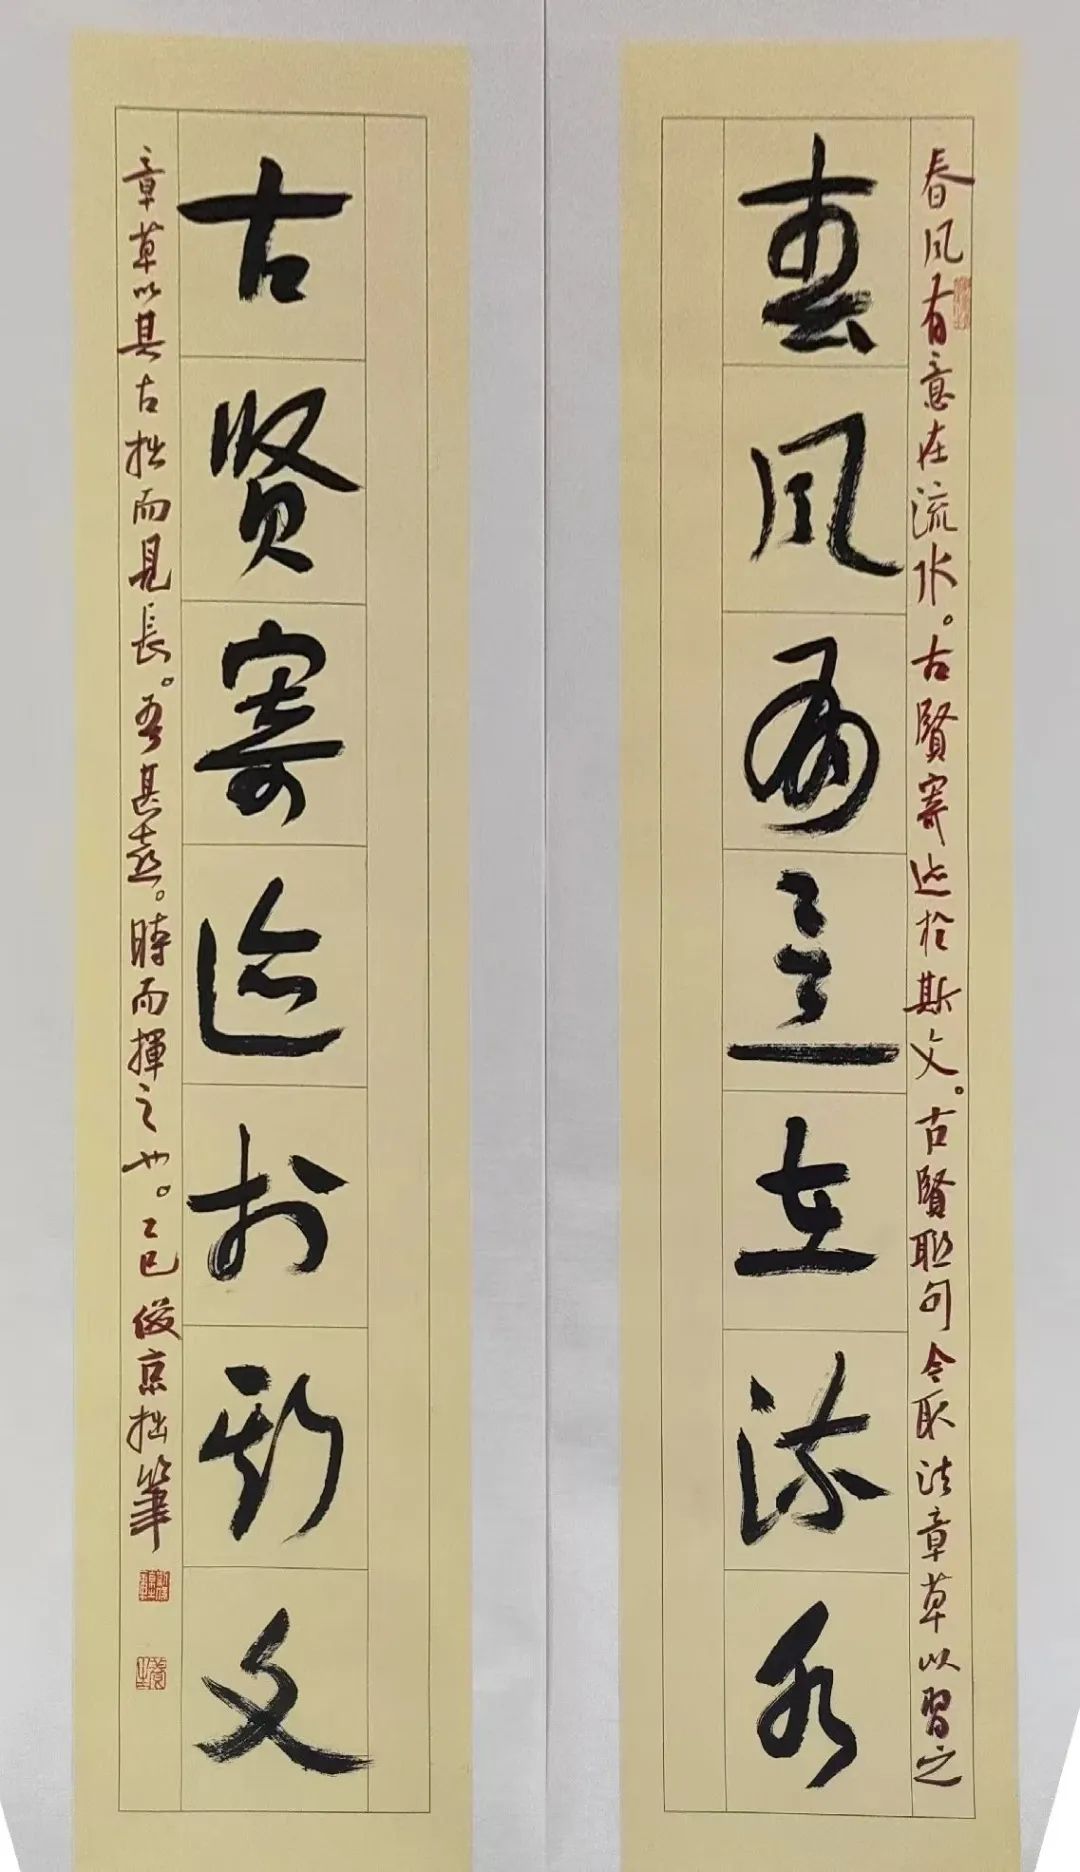 春風有意在流水。古賢寄迹於斯文。古賢聯句令取法章草以習之
春风有意在流水
古贤寄迹於斯文
章草以其古拙而見長。吾甚喜。時而揮之也。乙巳俊京拙筆